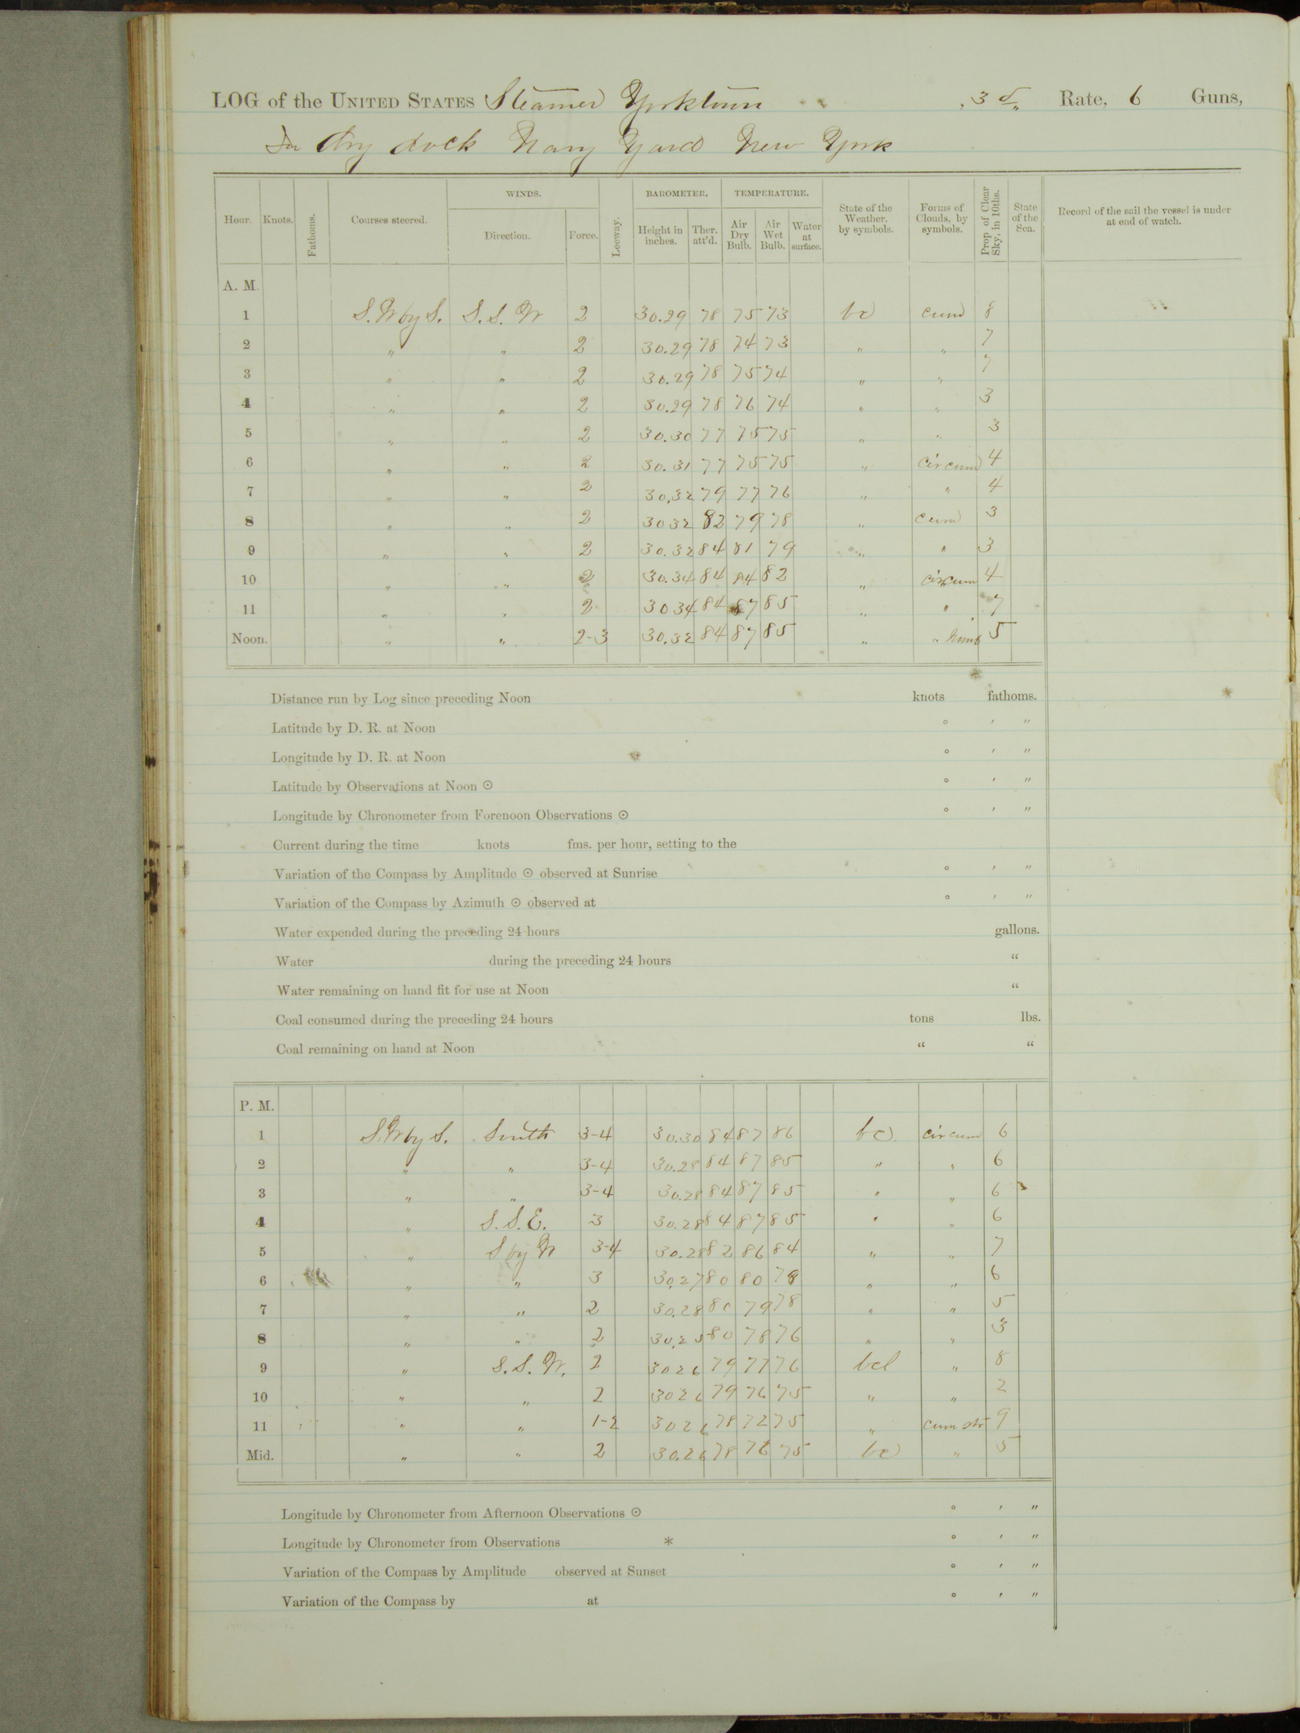 LOG of the UNITED STATES Steamer Yorktown 3d Rate, 6 Guns,
In dry dock Navy Yard New York
WINDS. BAROMETER. TEMPERATURE.
Hour. Knots. Fathoms. Courses steered. Direction. Force. Leeway. Height in inches. Ther. att'd. Air Dry Bulb. Air Wet Bulb. Water at surface. State of the Weather, by symbols. Forms of Clouds, by symbols. Prop. of Clear Sky, in 10ths. State of the Sea. Record of the sail the vessel is under at end of watch.
A. M.
1 S.W by S. S. S. W 2 30.29 78 75 73 bc cum 8
2 " " 2 30.29 78 74 73 " " 7
3 " " 2 30.29 78 75 74 " " 7
4 " " 2 30.29 78 76 74 " " 3
5 " " 2 30.30 77 75 75 " " 3
6 " " 2 30.31 77 75 75 " cir cum 4
7 " " 2 30.32 79 77 76 " " 4
8 " " 2 30 32 82 79 78 " cum 3
9 " " 2 30.32 84 81 79 " " 3
10 " " 2 30.34 84 84 82 " cir cum 4
11 " " 2 30 34 84 87 85 " " 7
Noon. " " 2-3 30.32 84 87 85 " " nimb 5
Distance run by Log since preceding Noon knots fathoms.
Latitude by D. R. at Noon ° ′ ″
Longitude by D. R. at Noon ° ′ ″
Latitude by Observations at Noon ☉ ° ′ ″
Longitude by Chronometer from Forenoon Observations ☉ ° ′ ″
Current during the time knots fms. per hour, setting to the
Variation of the Compass by Amplitude ☉ observed at Sunrise ° ′ ″
Variation of the Compass by Azimuth ☉ observed at ° ′ ″
Water expended during the preceding 24 hours gallons.
Water during the preceding 24 hours “
Water remaining on hand fit for use at Noon “
Coal consumed during the preceding 24 hours tons lbs.
Coal remaining on hand at Noon “ “
P. M.
1 S.W by S. South 3-4 30.30 84 87 86 bc. cir cum 6
2 " " 3-4 30.28 84 87 85 " " 6
3 " " 3-4 30.28 84 87 85 " " 6
4 " S. S. E. 3 30.28 84 87 85 " " 6
5 " S by W 3-4 30.28 82 86 84 " " 7
6 " " 3 30.27 80 80 78 " " 6
7 " " 2 30.28 80 79 78 " " 5
8 " " 2 30.25 80 78 76 " " 3
9 " S. S. W. 2 30 26 79 77 76 bcl " 8
10 " " 2 30 26 79 76 75 " " 2
11 " " 1-2 30 26 78 72 75 " cum str 9
Mid. " " 2 30.26 78 76 75 bc " 5
Longitude by Chronometer from Afternoon Observations ☉ ° ′ ″
Longitude by Chronometer from Observations * ° ′ ″
Variation of the Compass by Amplitude observed at Sunset ° ′ ″
Variation of the Compass by at ° ′ ″